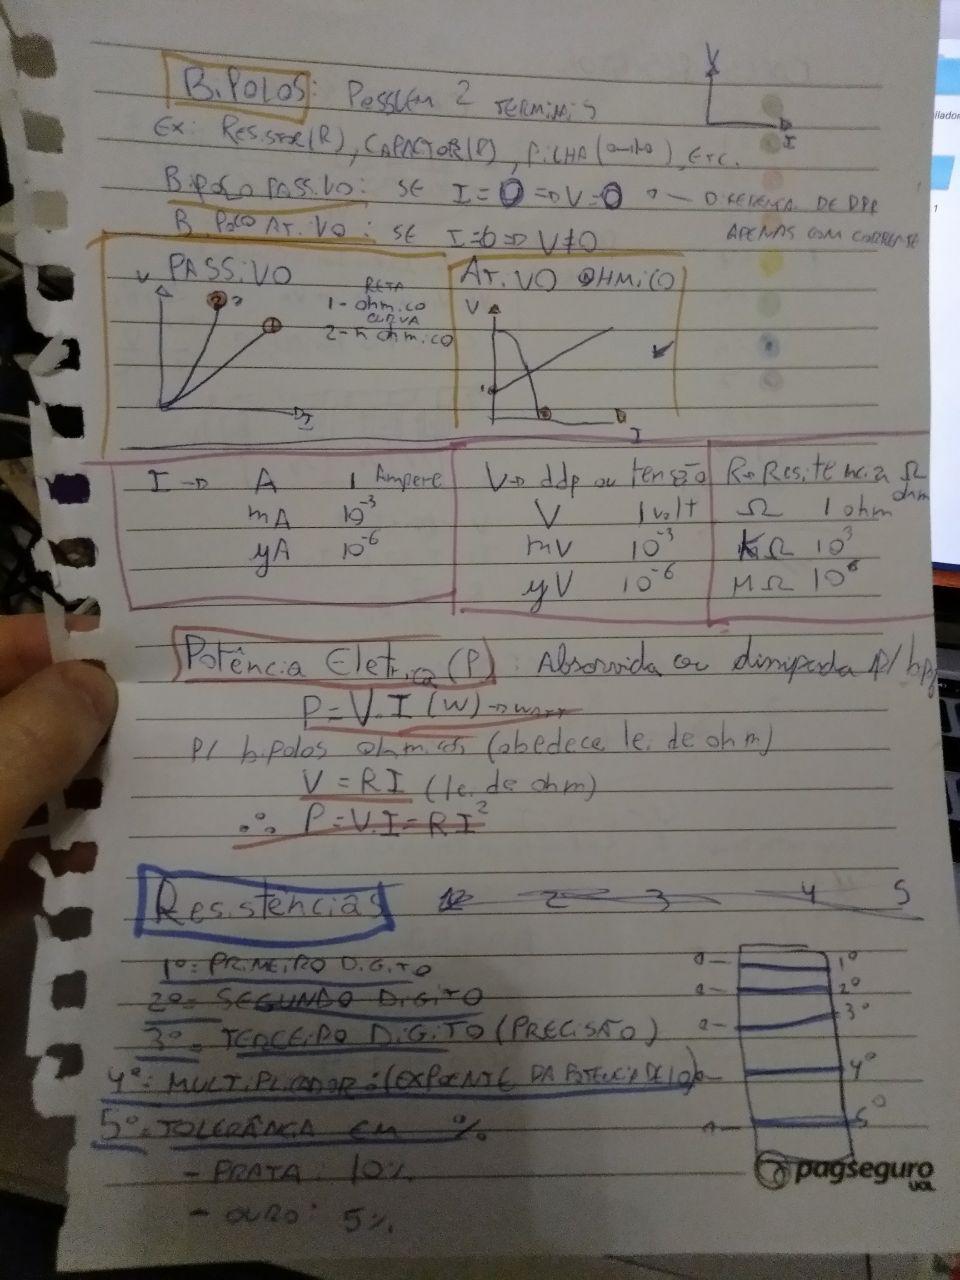 V
I
BiPOLOS: POSSUEM 2 TERMINAIS
EX: RESISTOR(R), CAPACITOR(P), PILHA(), ETC.
BIPOLO PASSIVO: SE I=0 => V=0 — DIFERENÇA DE DPP
APENAS COM CORRENTE
BIPOLO ATIVO: SE I=0 => V≠0
V PASSIVO
RETA
1-ohmico
CURVA
2-ñ ohmico
2
1
I
ATIVO OHMICO
V
I
I → A 1 Ampere
mA 10⁻³
yA 10⁻⁶
V→ ddp ou tensão
V 1 volt
mV 10⁻³
yV 10⁻⁶
R→Resitencia Ω
ohm
Ω 1 ohm
KΩ 10³
MΩ 10⁶
Potência Eletrica (P): Absorvida ou dissipada p/ bip
P=V.I (W)→WATT
P/ bipolos ohmicos (obedece lei de ohm)
V = RI (lei de ohm)
∴ P=V.I=RI²
Resistências 2 3 4 5
1º: PRIMEIRO DIGITO
2º= SEGUNDO DIGITO
3º= TERCEIRO DIGITO (PRECISÃO)
4º: MULTIPLICADOR: (EXPOENTE DA POTENCIA DE 10)
5º=TOLERÂNCIA EM %
- PRATA: 10%
- OURO: 5%
1º
2º
3º
4º
5º
pagseguro
UOL